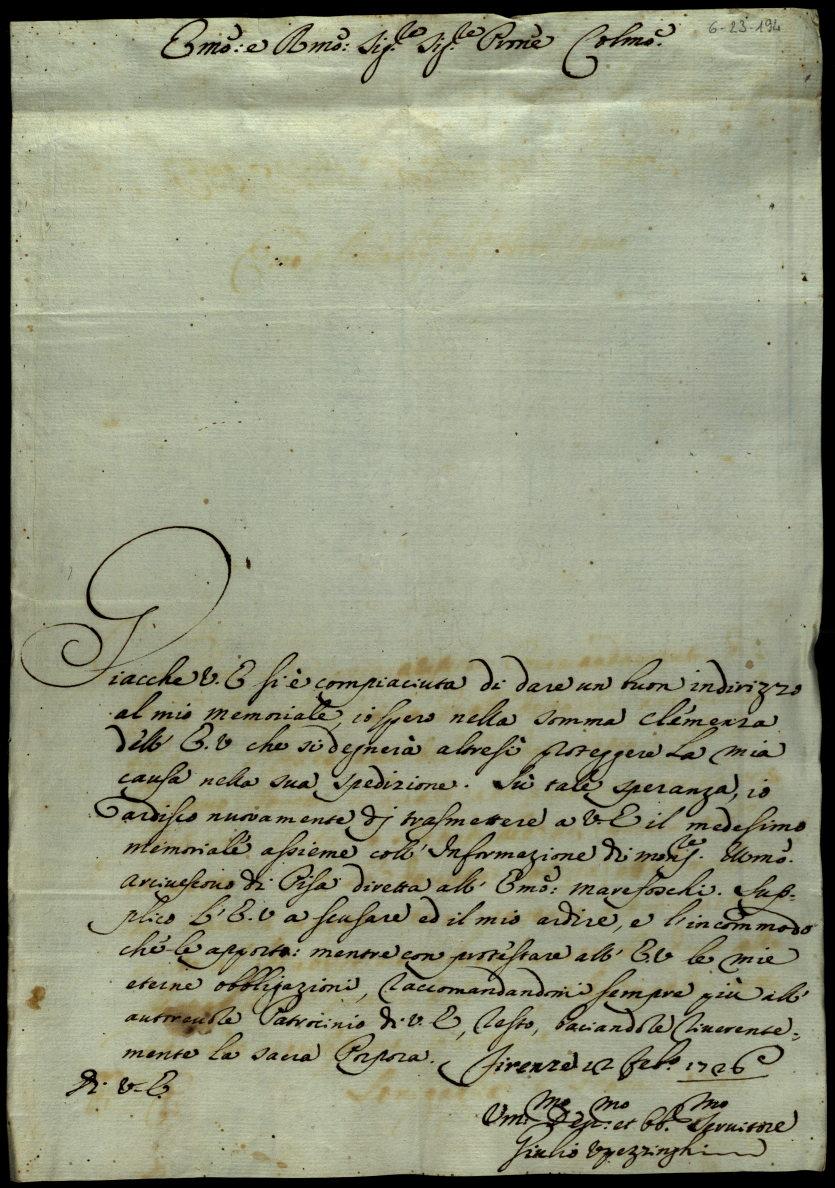 6-23-194
Emo: e Rmo: Sig.re Sig.re Prone Colmo.
Giacche V. E si è compiaciuta di dare un buon indirizzo
al mio memoriale, io spero nella somma clemenza
dell' E.V che si degnerà altresì proteggere la mia
causa nella sua spedizione. Sù tale speranza, io
ardisco nuovamente di trasmettere a V.E il medesimo
memoriale assieme coll' Informazione di Mons.re Illmo.
Arciuescouo di Pisa diretta all' Emo: Marefoschi. Sup-
plico L'E.V a scusare ed il mio ardire, e l'incommodo
che le apporto: mentre con protestare all' E.V le mie
eterne obbligazioni, raccomandandomi sempre più all'
autoreuole Patrocinio di V.E, resto, baciandole riuerente-
mente la sacra Porpora. Firenze 12 feb.o 1726
di V.E.
Vmi.mo De.mo et Obb.mo Seruitore
Giulio Vpezzinghi